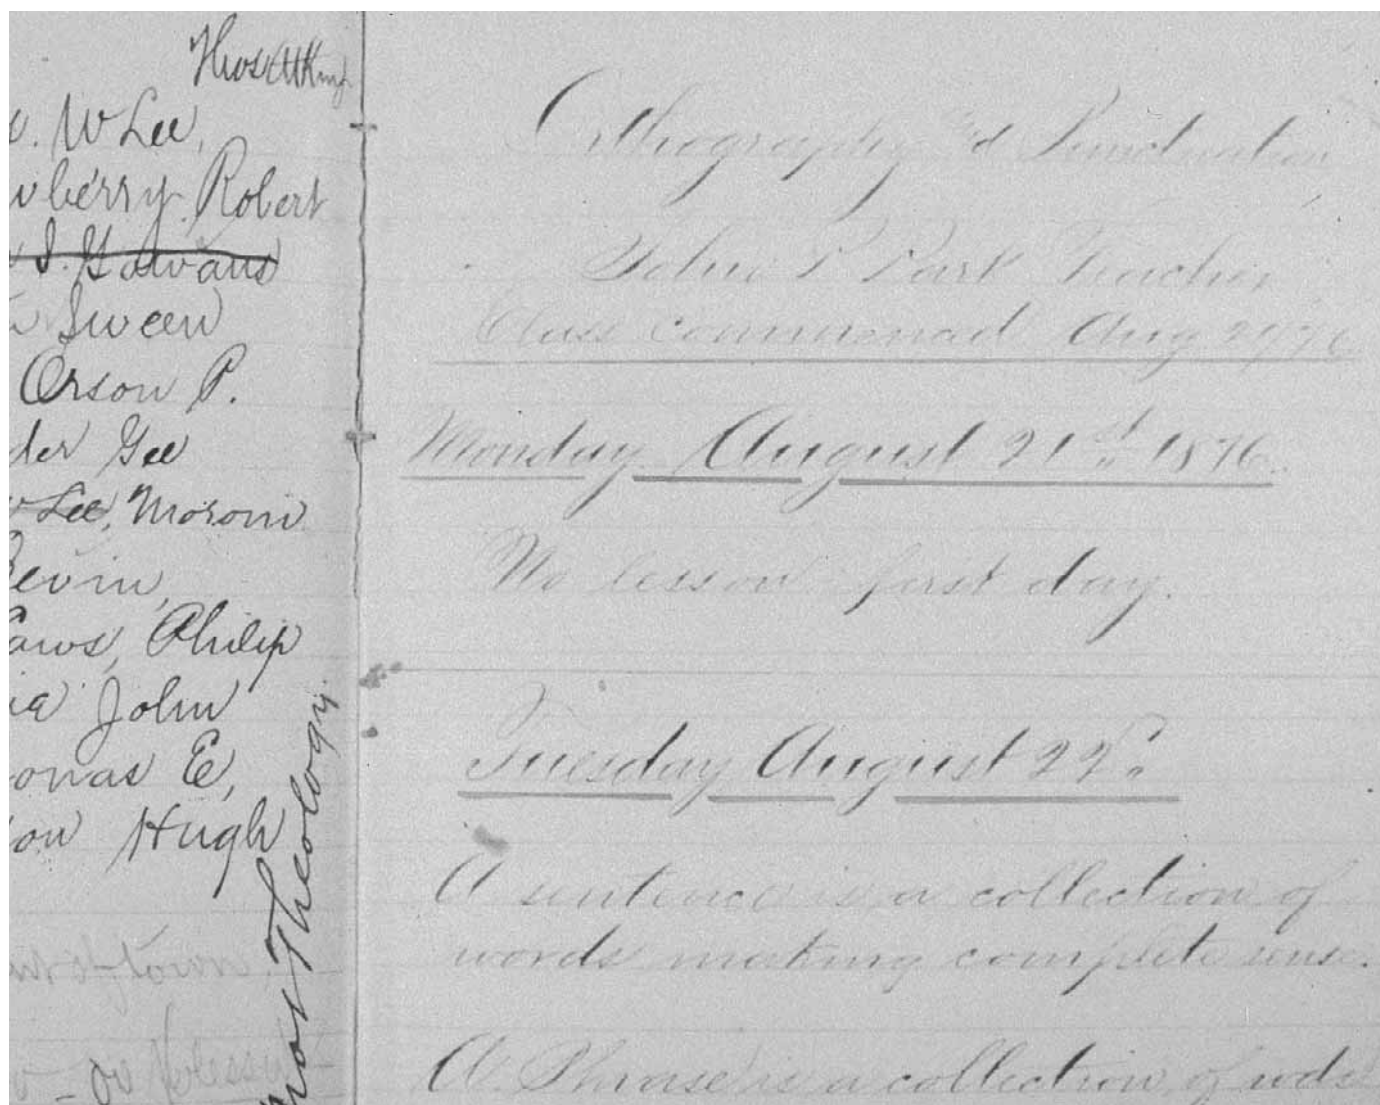 Thos Atkin
W Lee,
berry Robert
Gowans
Sween
Orson P.
der Gee
Lee, Moroni
Bevin,
aws, Philip
John
onas E,
on Hugh
Theology
of town
Orthography & Punctuation
John P Park Teacher
Class commenced Aug 21/76
Monday August 21st 1876.
No lesson first day.
Tuesday August 22d.
A sentence is a collection of
words making complete sense.
A Phrase is a collection of wds